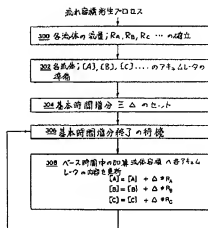 流れ容積発生プロセス
300 各流体の容量；RA, RB, RC … の確立
302 各流体；[A], [B], [C] .... のアキュムレータの
準備
304 基本時間増分 ≡ △ のセット
306 基本時間増分終了の待機
308 ベース時間中の加算流体容積 へ各アキュム
レータの内容を更新
[A] = [A] + △ * RA
[B] = [B] + △ * RB
[C] = [C] + △ * RC